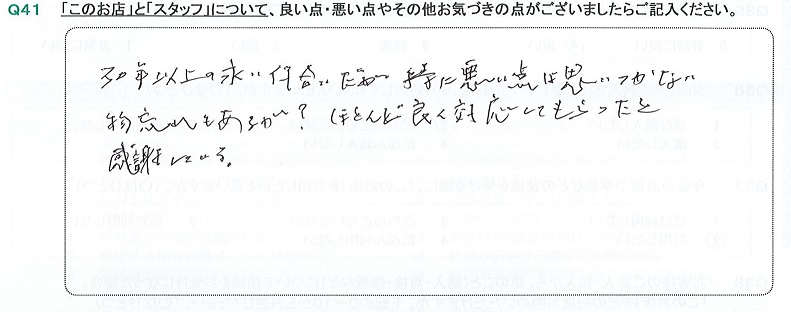 Q41 「このお店」と「スタッフ」について、良い点・悪い点やその他お気づきの点がございましたらご記入ください。
30年以上の永い付合いだが特に悪い点は思いつかない
物忘れもあるが？ほとんど良く対応してもらったと
感謝している。